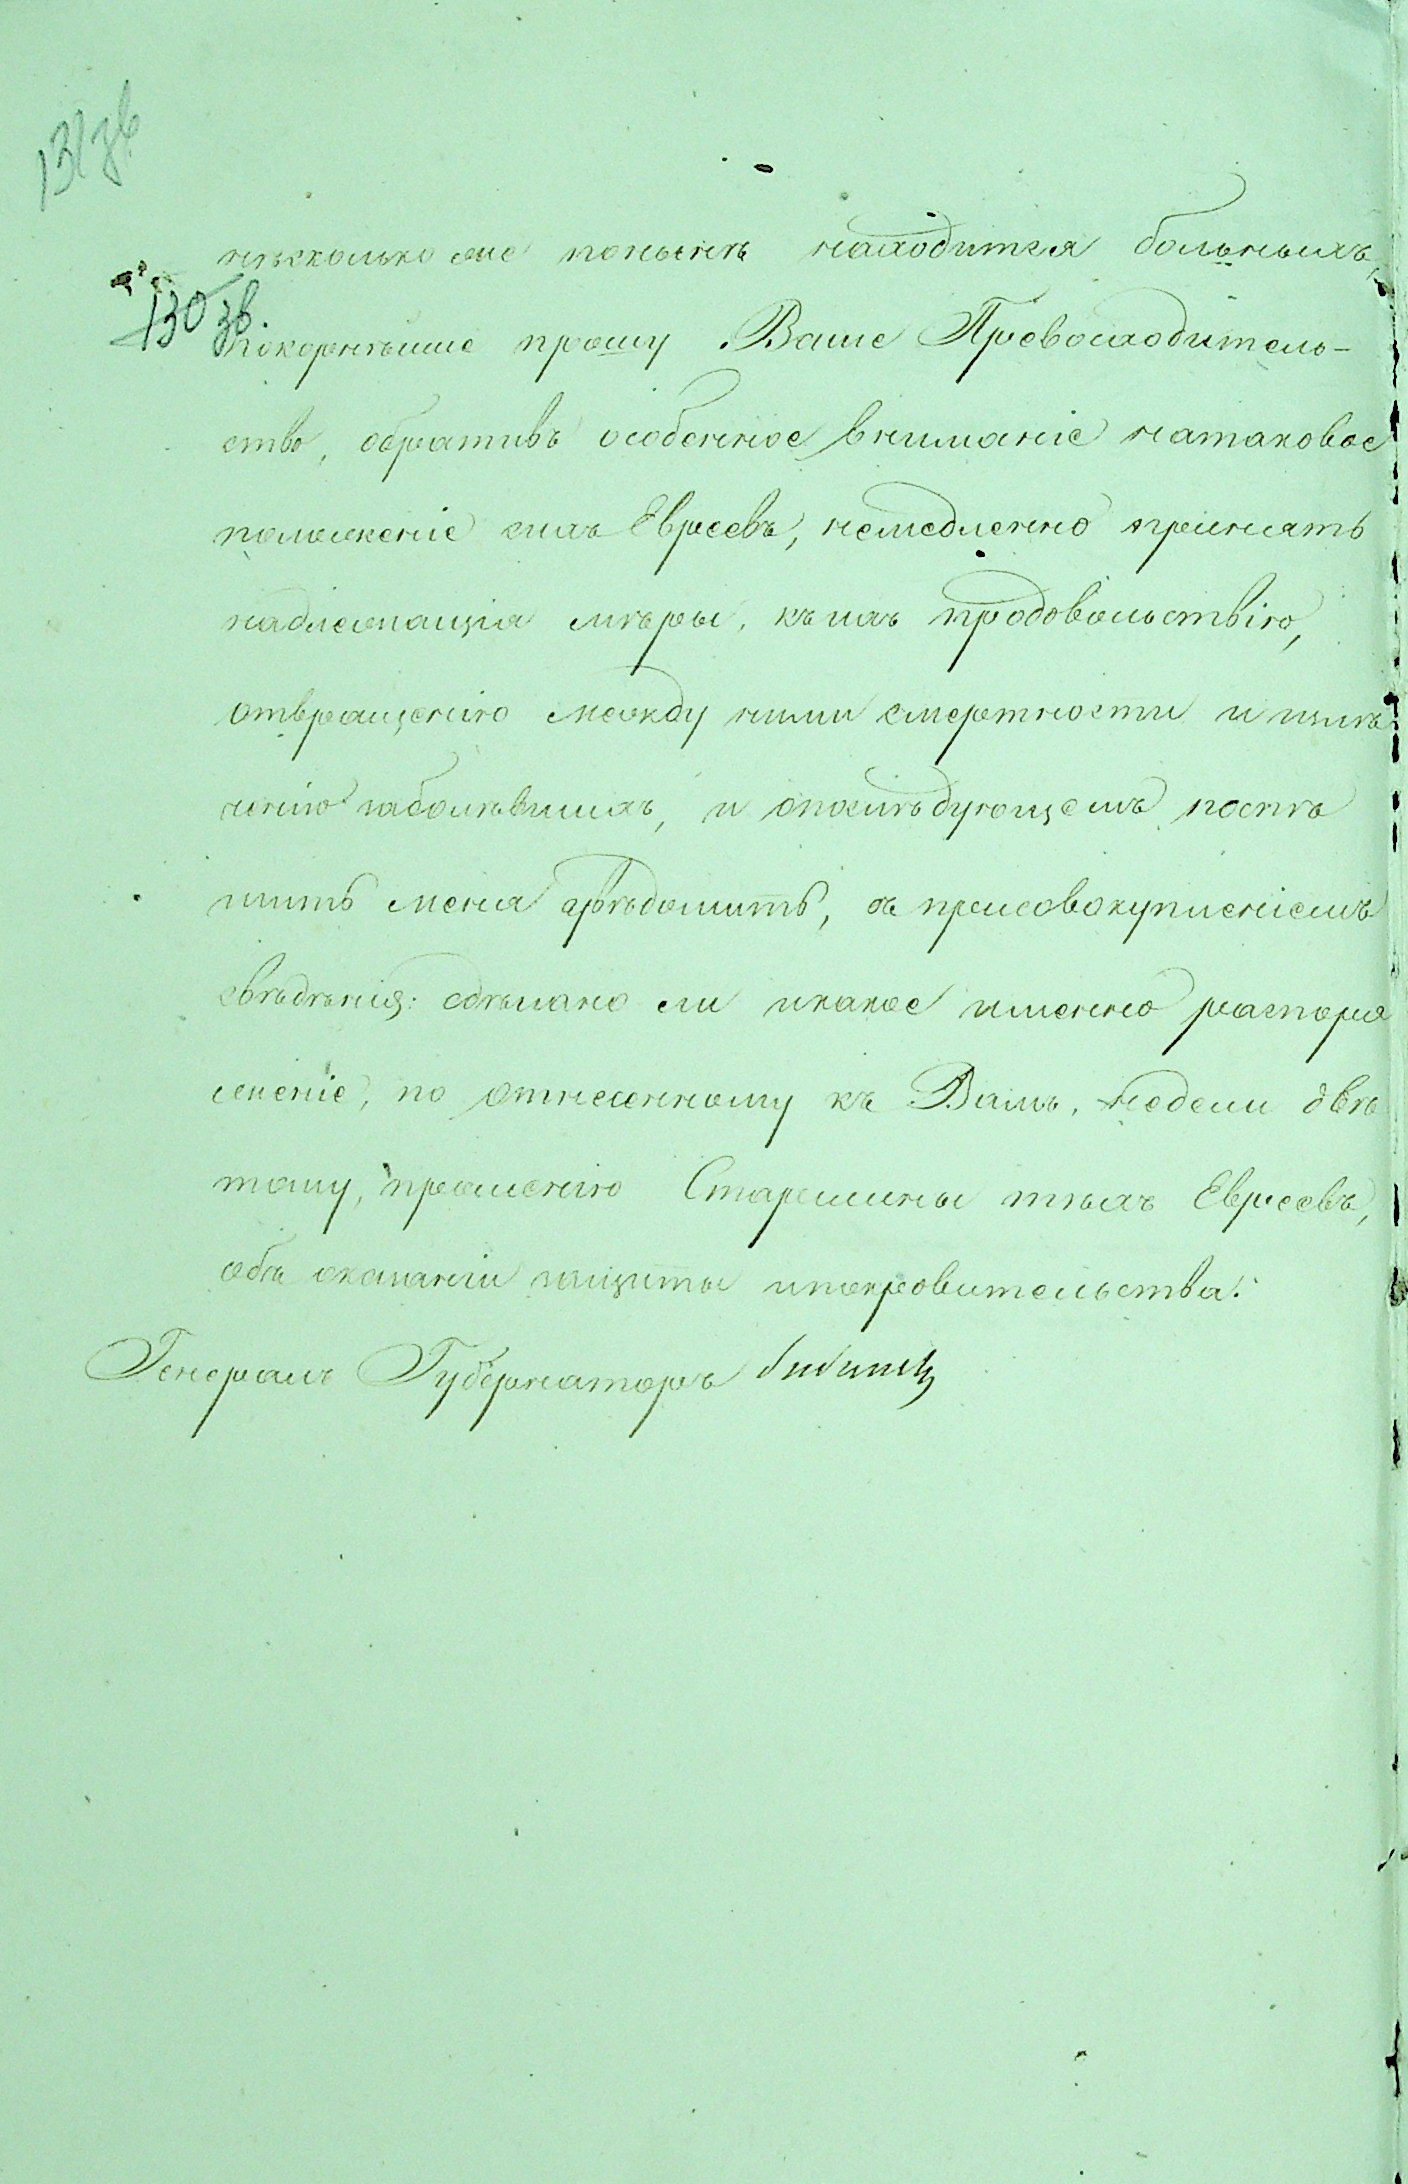 131 зв
нѣсколько же понынѣ находится больныхъ,
130 зв.
покорнѣйше прошу Ваше Превосходитель-
ство, обративъ особенное вниманіе на таковое
положеніе сихъ Евреевъ, немедленно принять
надлежащія мѣры, къ ихъ продовольствію,
отвращенію между ними смертности и излѣ
ченію заболѣвшихъ, и о послѣдующемъ поспѣ
шить меня увѣдомить, съ присовокупленіемъ
свѣдѣнія: сдѣлано ли и какое именно распоря
женіе, по отнесенному къ Вамъ, недели двѣ
тому, прошенію Старшины тѣхъ Евреевъ,
объ оказаніи защиты и покровительства.
Генералъ Губернаторъ Бибиковъ